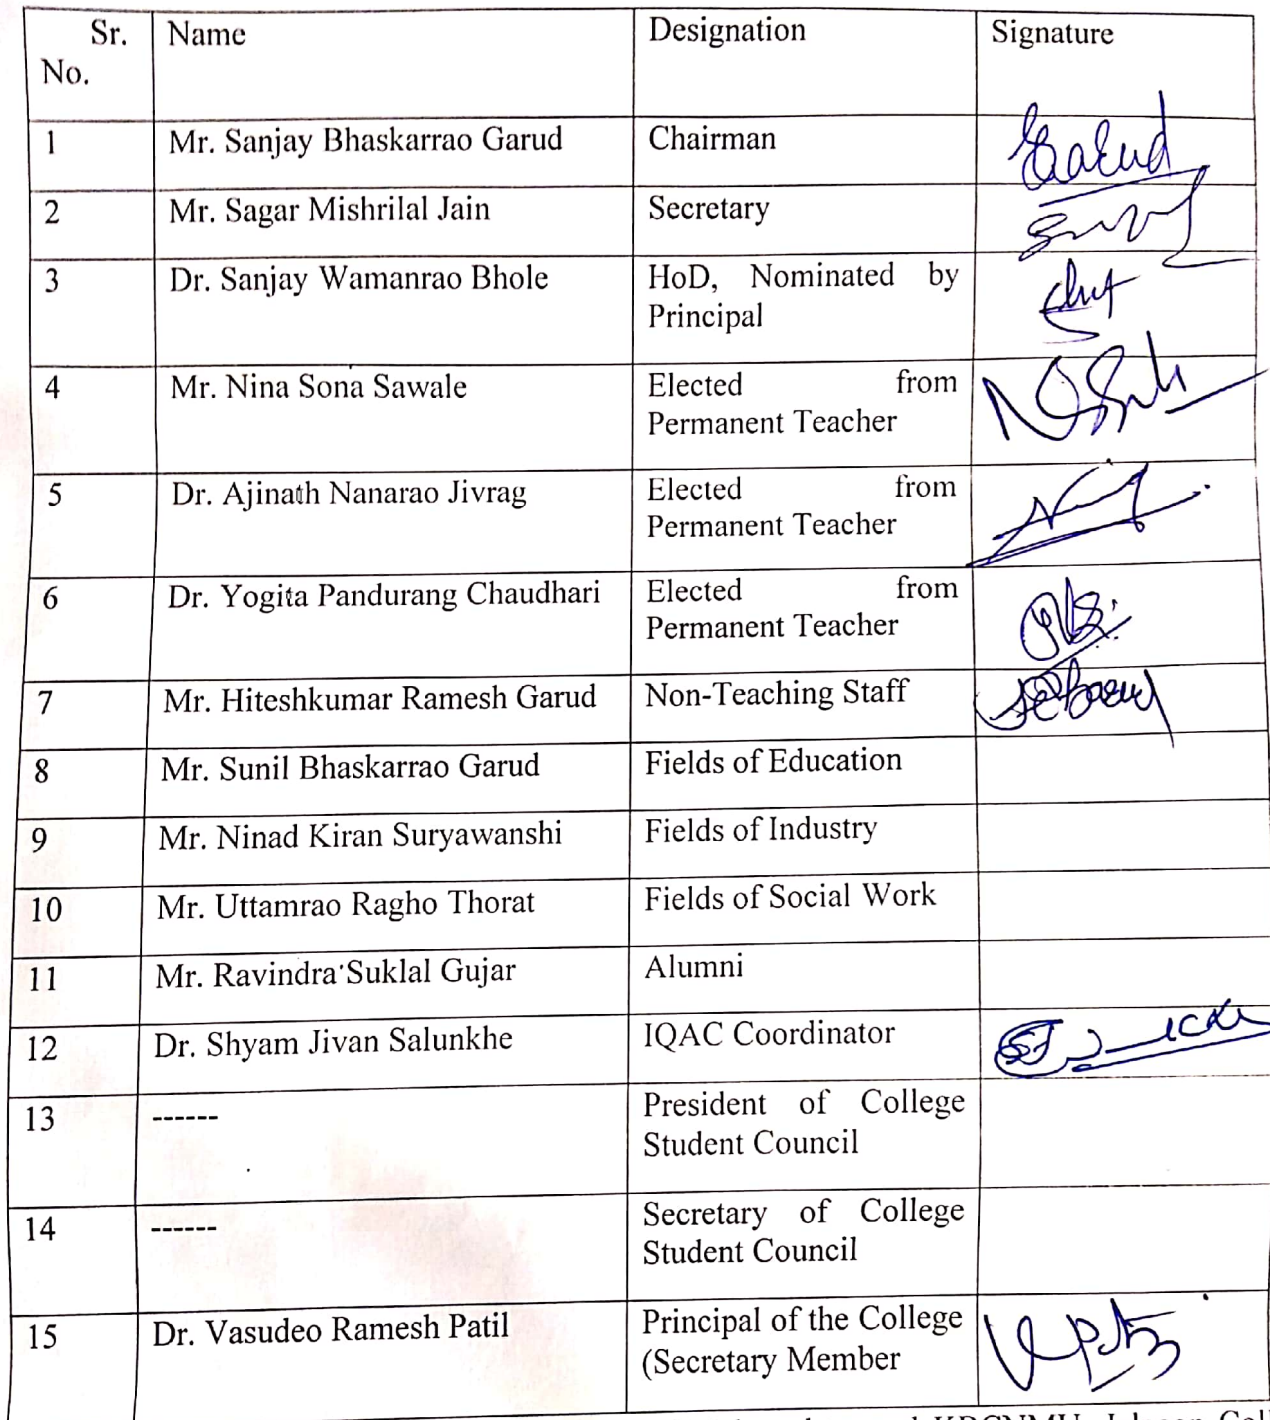 Sr. No. Name Designation Signature
1 Mr. Sanjay Bhaskarrao Garud Chairman Garud
2 Mr. Sagar Mishrilal Jain Secretary
3 Dr. Sanjay Wamanrao Bhole HoD, Nominated by
Principal
4 Mr. Nina Sona Sawale Elected from
Permanent Teacher
5 Dr. Ajinath Nanarao Jivrag Elected from
Permanent Teacher
6 Dr. Yogita Pandurang Chaudhari Elected from
Permanent Teacher
7 Mr. Hiteshkumar Ramesh Garud Non-Teaching Staff
8 Mr. Sunil Bhaskarrao Garud Fields of Education
9 Mr. Ninad Kiran Suryawanshi Fields of Industry
10 Mr. Uttamrao Ragho Thorat Fields of Social Work
11 Mr. Ravindra Suklal Gujar Alumni
12 Dr. Shyam Jivan Salunkhe IQAC Coordinator
13 ------ President of College
Student Council
14 ------ Secretary of College
Student Council
15 Dr. Vasudeo Ramesh Patil Principal of the College
(Secretary Member